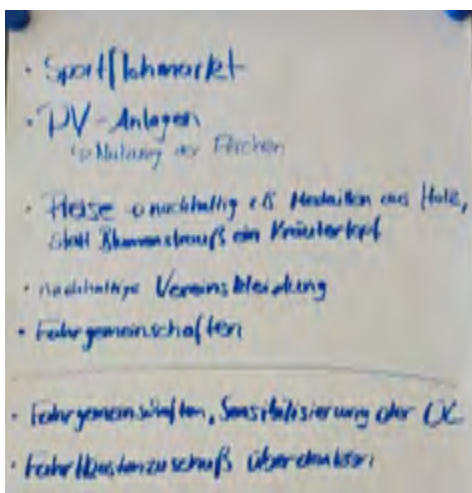 · Sportflohmarkt
· PV-Anlagen
↳ Nutzung der Flächen
· Preise → nachhaltig z.B. Medaillen aus Holz,
statt Blumenstrauß ein Kräutertopf
· nachhaltige Vereinskleidung
· Fahrgemeinschaften
· Fahrgemeinschaften, Sensibilisierung der ÜL
· Fahrtkostenzuschuß überdenken